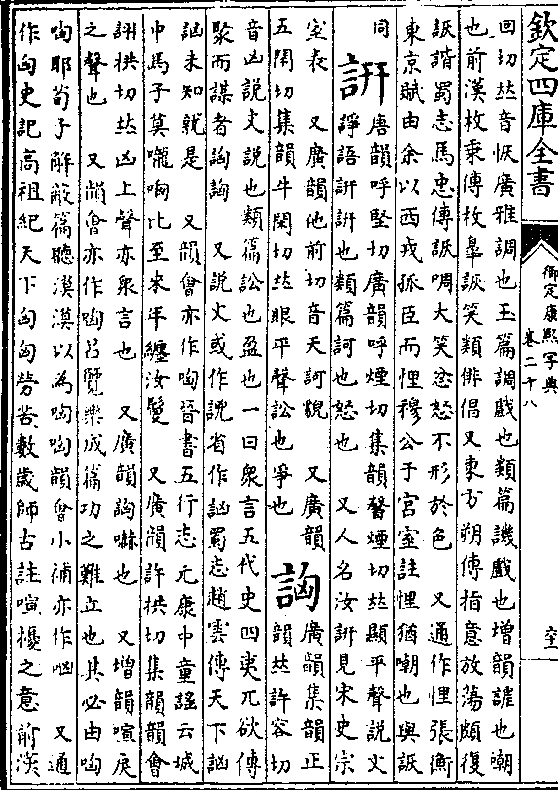 欽定四庫全書
御定康熙字典
卷二十八
回切𠀤音恢廣雅調也玉篇調戲也類篇譏戲也增韻謔也嘲
也前漢枚乘傳枚臯詼笑類俳倡又東方朔傳指意放蕩頗復
詼諧蜀志馬忠傳詼啁大笑忿怒不形於色　又通作悝張衡
東京賦由余以西戎孤臣而悝穆公于宮室註悝猶嘲也與詼
同
訮
唐韻呼堅切廣韻呼煙切集韻馨煙切𠀤顯平聲說文
諍語訮訮也類篇訶也怒也　又人名汝訮見宋史宗
室表　又廣韻他前切音天訶貌　又廣韻
五閑切集韻牛閑切𠀤眼平聲訟也爭也
詾
廣韻集韻正
韻𠀤許容切
音凶說文說也類篇訟也盈也一曰衆言五代史四夷兀欲傳
聚而謀者詾詾　又說文或作說省作訩蜀志趙雲傳天下訩
訩未知孰是　又韻會亦作哅晉書五行志元康中童謠云城
中馬子莫嚨哅比至來年纏汝鬉　又廣韻許拱切集韻韻會
詡拱切𠀤凶上聲亦衆言也　又廣韻詾嚇也　又增韻喧戾
之聲也　又韻會亦作哅呂覽樂成篇功之難立也其必由哅
哅耶荀子解蔽篇聽漠漠以為哅哅韻會小補亦作恟　又通
作匈史記高祖紀天下匈匈勞苦數歲師古註喧擾之意前漢